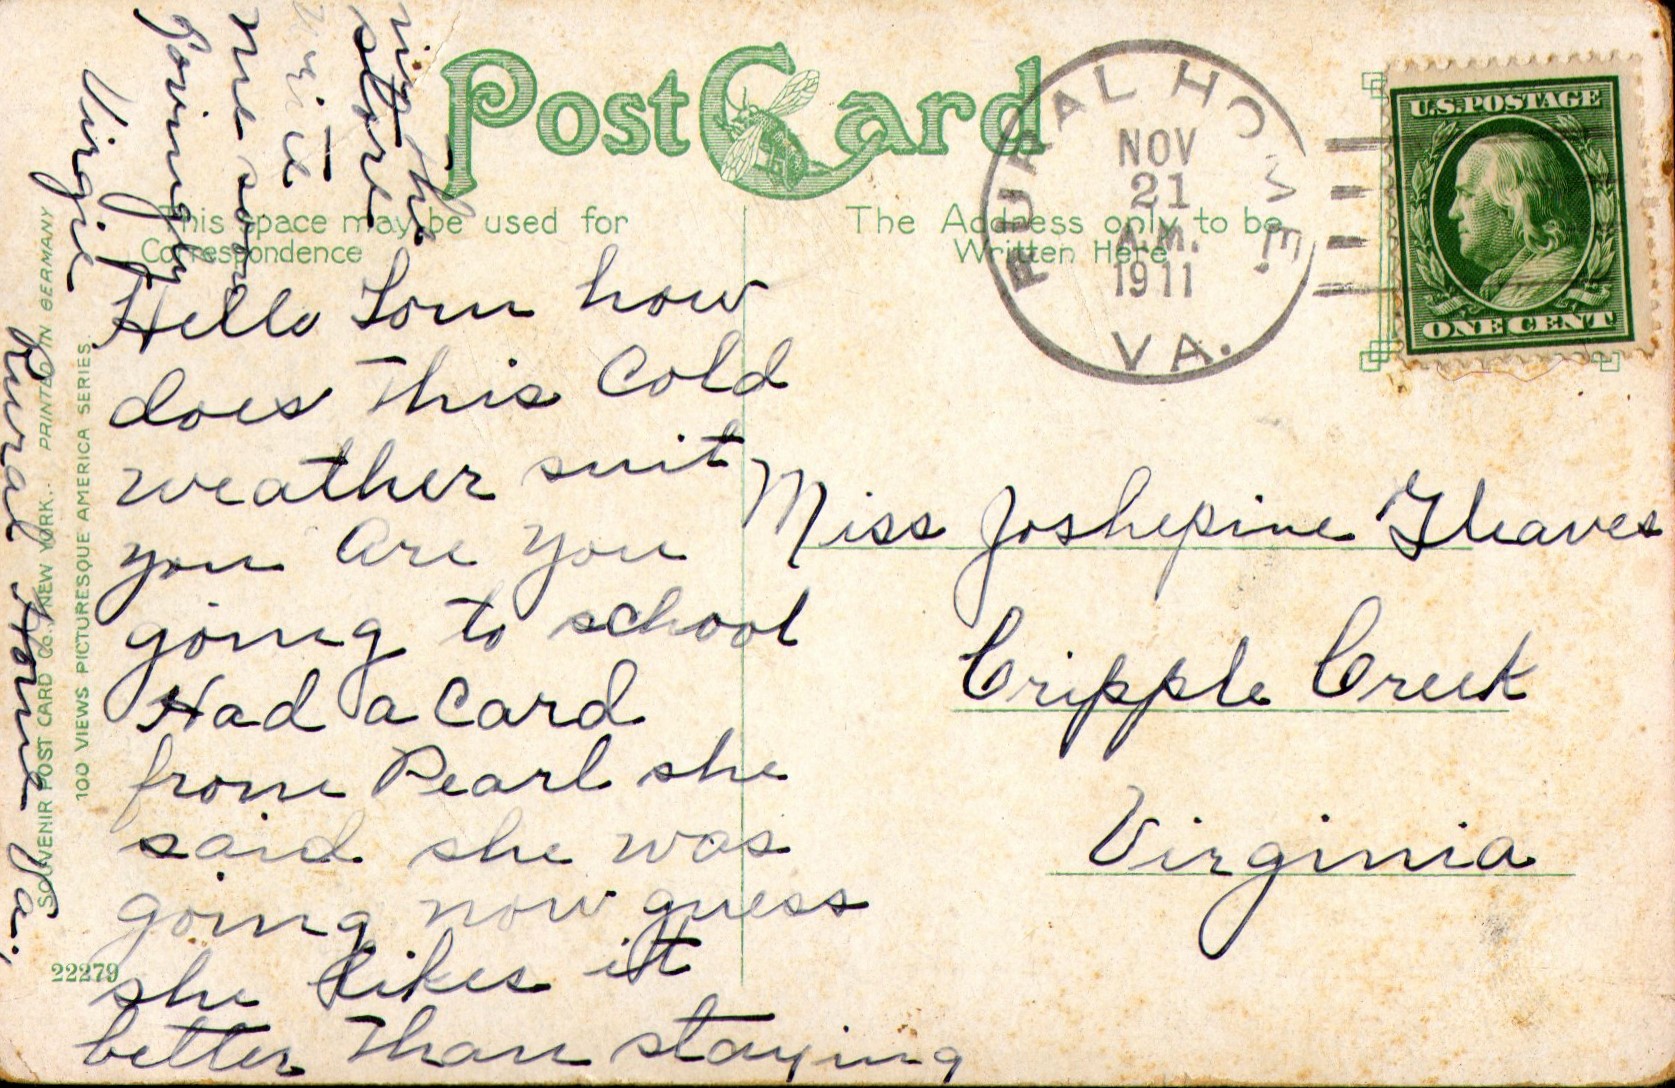 Post Card
This space may be used for
Correspondence
The Address only to be
Written Here
RURAL HOME.
NOV
21
A.M.
1911
VA.
U.S. POSTAGE
ONE CENT
Hello how
does this Cold
weather suit
you Are you
going to school
Had a Card
from Pearl she
said she was
going now guess
she likes it
better than staying
in the
store
write
me soon
Lovingly
Virgie
Rural Home Va.
Miss Joshepine Gleaves
Cripple Creek
Virginia
SOUVENIR POST CARD Co. NEW YORK. PRINTED IN GERMANY
100 VIEWS PICTURESQUE AMERICA SERIES.
22279